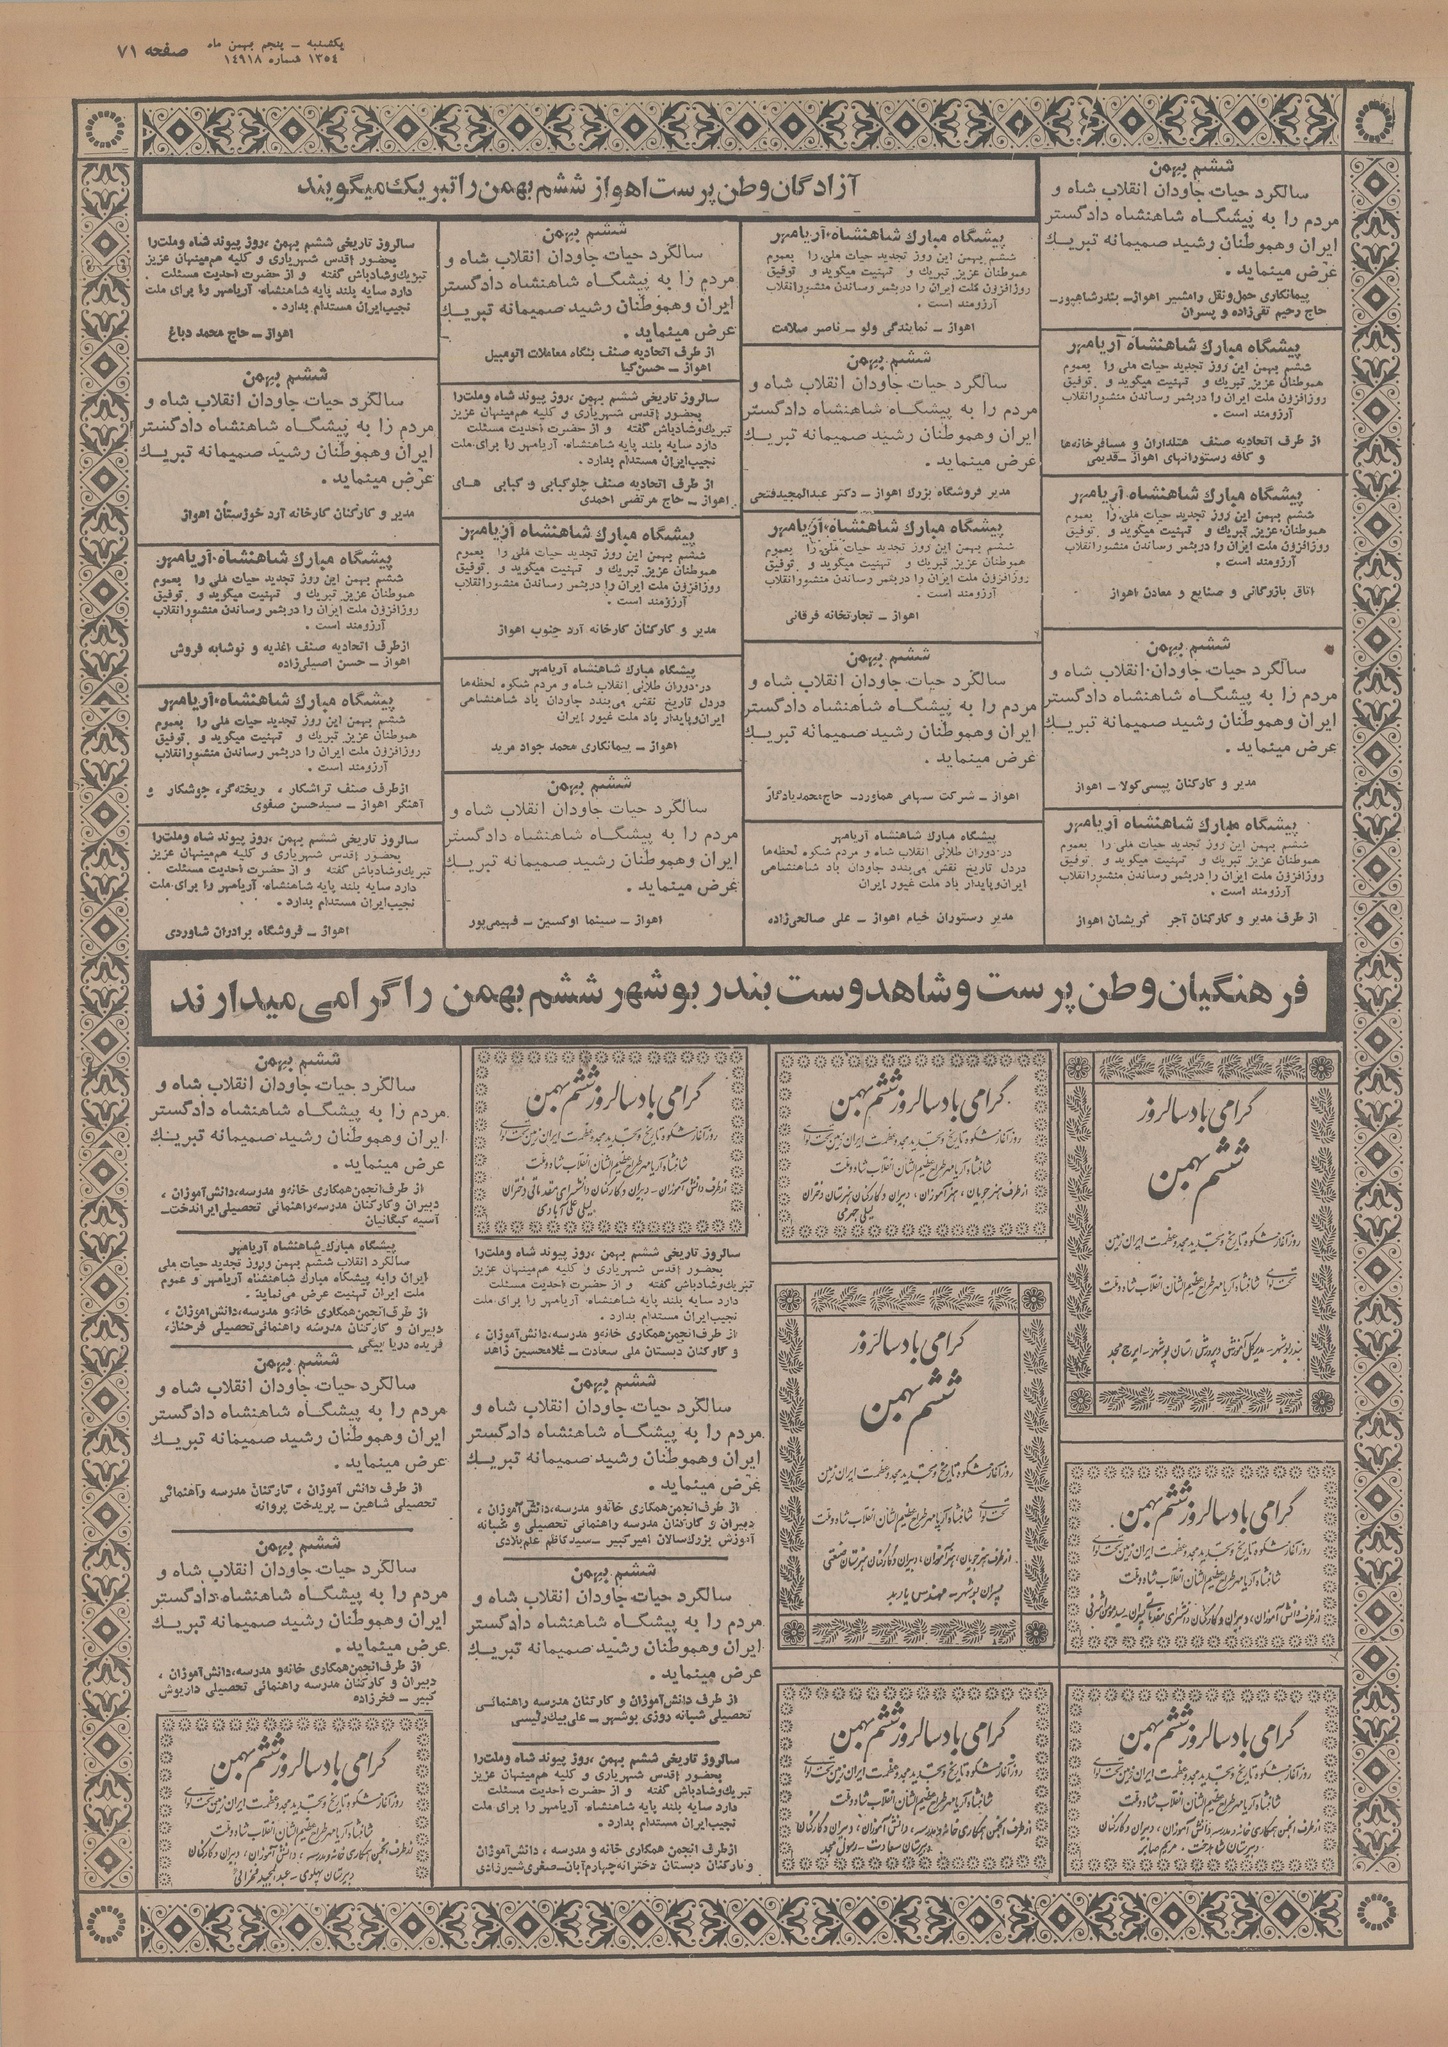 یکشنبه – پنجم بهمن ماه
۱۳۵٤ شماره ۱٤۹۱۸
صفحه ۷۱
آزادگان وطن پرست اهواز ششم بهمن را تبریک میگویند
ششم بهمن
سالگرد حیات جاودان انقلاب شاه و
مردم را به پیشگاه شاهنشاه دادگستر
ایران وهموطنان رشید صمیمانه تبریك
عرض مینماید .
پیمانکاری حمل‌ونقل رامشیر اهواز– بندرشاهپور–
حاج رحیم تقی‌زاده و پسران
پیشگاه مبارك شاهنشاه آریامهر
ششم بهمن این روز تجدید حیات ملی را بعموم
هموطنان عزیز تبریك و تهنیت میگوید و توفیق
روزافزون ملت ایران را دربثمر رساندن منشورانقلاب
آرزومند است .
از طرف اتحادیه صنف هتلداران و مسافرخانه‌ها
و کافه رستورانهای اهواز –قدیمی
پیشگاه مبارك شاهنشاه آریامهر
ششم بهمن این روز تجدید حیات ملی را بعموم
هموطنان عزیز تبریك و تهنیت میگوید و توفیق
روزافزون ملت ایران را دربثمر رساندن منشورانقلاب
آرزومند است .
اتاق بازرگانی و صنایع و معادن اهواز
ششم بهمن
سالگرد حیات جاودان انقلاب شاه و
مردم را به پیشگاه شاهنشاه دادگستر
ایران وهموطنان رشید صمیمانه تبریك
عرض مینماید .
مدیر و کارکنان پپسی‌کولا – اهواز
پیشگاه مبارك شاهنشاه آریامهر
ششم بهمن این روز تجدید حیات ملی را بعموم
هموطنان عزیز تبریك و تهنیت میگوید و توفیق
روزافزون ملت ایران را دربثمر رساندن منشورانقلاب
آرزومند است .
از طرف مدیر و کارکنان آجر گریشان اهواز
پیشگاه مبارك شاهنشاه آریامهر
ششم بهمن این روز تجدید حیات ملی را بعموم
هموطنان عزیز تبریك و تهنیت میگوید و توفیق
روزافزون ملت ایران را دربثمر رساندن منشورانقلاب
آرزومند است .
اهواز – نمایندگی ولو – ناصر سلامت
ششم بهمن
سالگرد حیات جاودان انقلاب شاه و
مردم را به پیشگاه شاهنشاه دادگستر
ایران وهموطنان رشید صمیمانه تبریك
عرض مینماید .
مدیر فروشگاه بزرك اهواز – دکتر عبدالمجیدفتحی
پیشگاه مبارك شاهنشاه آریامهر
ششم بهمن این روز تجدید حیات ملی را بعموم
هموطنان عزیز تبریك و تهنیت میگوید و توفیق
روزافزون ملت ایران را دربثمر رساندن منشورانقلاب
آرزومند است .
اهواز – تجارتخانه فرقانی
ششم بهمن
سالگرد حیات جاودان انقلاب شاه و
مردم را به پیشگاه شاهنشاه دادگستر
ایران وهموطنان رشید صمیمانه تبریك
عرض مینماید .
اهواز – شرکت سهامی هماورد– حاج‌محمدیادگار
پیشگاه مبارك شاهنشاه آریامهر
در دوران طلائی انقلاب شاه و مردم شکوه لحظه‌ها
دردل تاریخ نقش می‌بندد جاودان باد شاهنشاهی
ایران‌وپایدار باد ملت غیور ایران
مدیر رستوران خیام اهواز – علی صالحی‌زاده
ششم بهمن
سالگرد حیات جاودان انقلاب شاه و
مردم را به پیشگاه شاهنشاه دادگستر
ایران وهموطنان رشید صمیمانه تبریك
عرض مینماید .
از طرف اتحادیه صنف بنگاه معاملات اتومبیل
اهواز – حسن‌کیا
سالروز تاریخی ششم بهمن ،روز پیوند شاه وملت‌را
بحضور اقدس شهریاری و کلیه هم‌میهنان عزیز
تبریك‌وشادباش گفته و از حضرت احدیت مسئلت
دارد سایه بلند پایه شاهنشاه آریامهر را برای ملت
نجیب‌ایران مستدام بدارد .
از طرف اتحادیه صنف چلوکبابی و کبابی های
اهواز – حاج مرتضی احمدی
پیشگاه مبارك شاهنشاه آریامهر
ششم بهمن این روز تجدید حیات ملی را بعموم
هموطنان عزیز تبریك و تهنیت میگوید و توفیق
روزافزون ملت ایران را دربثمر رساندن منشورانقلاب
آرزومند است .
مدیر و کارکنان کارخانه آرد جنوب اهواز
پیشگاه مبارك شاهنشاه آریامهر
در دوران طلائی انقلاب شاه و مردم شکوه لحظه‌ها
دردل تاریخ نقش می‌بندد جاودان باد شاهنشاهی
ایران‌وپایدار باد ملت غیور ایران
اهواز – پیمانکاری محمد جواد مرید
ششم بهمن
سالگرد حیات جاودان انقلاب شاه و
مردم را به پیشگاه شاهنشاه دادگستر
ایران وهموطنان رشید صمیمانه تبریك
عرض مینماید .
اهواز – سینما اوکسین – فهیمی‌پور
سالروز تاریخی ششم بهمن ،روز پیوند شاه وملت‌را
بحضور اقدس شهریاری و کلیه هم‌میهنان عزیز
تبریك‌وشادباش گفته و از حضرت احدیت مسئلت
دارد سایه بلند پایه شاهنشاه آریامهر را برای ملت
نجیب‌ایران مستدام بدارد .
اهواز – حاج محمد دباغ
ششم بهمن
سالگرد حیات جاودان انقلاب شاه و
مردم را به پیشگاه شاهنشاه دادگستر
ایران وهموطنان رشید صمیمانه تبریك
عرض مینماید .
مدیر و کارکنان کارخانه آرد خوزستان اهواز
پیشگاه مبارك شاهنشاه آریامهر
ششم بهمن این روز تجدید حیات ملی را بعموم
هموطنان عزیز تبریك و تهنیت میگوید و توفیق
روزافزون ملت ایران را دربثمر رساندن منشورانقلاب
آرزومند است .
ازطرف اتحادیه صنف اغذیه و نوشابه فروش
اهواز – حسن اصیلی‌زاده
پیشگاه مبارك شاهنشاه آریامهر
ششم بهمن این روز تجدید حیات ملی را بعموم
هموطنان عزیز تبریك و تهنیت میگوید و توفیق
روزافزون ملت ایران را دربثمر رساندن منشورانقلاب
آرزومند است .
ازطرف صنف تراشکار ، ریخته‌گر، جوشکار و
آهنگر اهواز – سیدحسن صفوی
سالروز تاریخی ششم بهمن ،روز پیوند شاه وملت‌را
بحضور اقدس شهریاری و کلیه هم‌میهنان عزیز
تبریك‌وشادباش گفته و از حضرت احدیت مسئلت
دارد سایه بلند پایه شاهنشاه آریامهر را برای ملت
نجیب‌ایران مستدام بدارد .
اهواز – فروشگاه برادران شاوردی
فرهنگیان وطن پرست وشاهدوست بندر بوشهر ششم بهمن را گرامی میدارند
گرامی باد سالروز
ششم بهمن
روز آغاز شکوه تاریخ و تجدید مجد و عظمت ایران زمین
تحت لوای شاهنشاه آریامهر طراح عظیم الشان انقلاب شاه و ملت
بندر بوشهر – مدیرکل آموزش و پرورش استان بوشهر – ایرج مجد
گرامی باد سالروز ششم بهمن
روز آغاز شکوه تاریخ و تجدید مجد و عظمت ایران زمین تحت لوای
شاهنشاه آریامهر طراح عظیم الشان انقلاب شاه و ملت
از طرف دانش آموزان، دبیران و کارکنان دانشسرای مقدماتی پسران –
گرامی باد سالروز ششم بهمن
روز آغاز شکوه تاریخ و تجدید مجد و عظمت ایران زمین تحت لوای
شاهنشاه آریامهر طراح عظیم الشان انقلاب شاه و ملت
از طرف انجمن همکاری خانه و مدرسه ، دانش آموزان ، دبیران و کارکنان
دبیرستان شاهدخت – مریم صابر
گرامی باد سالروز ششم بهمن
روز آغاز شکوه تاریخ و تجدید مجد و عظمت ایران زمین تحت لوای
شاهنشاه آریامهر طراح عظیم الشان انقلاب شاه و ملت
از طرف هنرجویان ، هنرآموزان ، دبیران و کارکنان هنرستان دختران
لیلی جهرمی
گرامی باد سالروز
ششم بهمن
روز آغاز شکوه تاریخ و تجدید مجد و عظمت ایران زمین
تحت لوای شاهنشاه آریامهر طراح عظیم الشان انقلاب شاه و ملت
از طرف هنرجویان، هنرآموزان، دبیران و کارکنان هنرستان صنعتی
پسران بوشهر – مهندس یاربد
گرامی باد سالروز ششم بهمن
روز آغاز شکوه تاریخ و تجدید مجد و عظمت ایران زمین تحت لوای
شاهنشاه آریامهر طراح عظیم الشان انقلاب شاه و ملت
از طرف انجمن همکاری خانه و مدرسه ، دانش آموزان ، دبیران و کارکنان
دبیرستان سعادت – رسول مجد
گرامی باد سالروز ششم بهمن
روز آغاز شکوه تاریخ و تجدید مجد و عظمت ایران زمین تحت لوای
شاهنشاه آریامهر طراح عظیم الشان انقلاب شاه و ملت
از طرف دانش آموزان – دبیران و کارکنان دانشسرای مقدماتی دختران
لیلی علی آبادی
سالروز تاریخی ششم بهمن ،روز پیوند شاه وملت‌را
بحضور اقدس شهریاری و کلیه هم‌میهنان عزیز
تبریك‌وشادباش گفته و از حضرت احدیت مسئلت
دارد سایه بلند پایه شاهنشاه آریامهر را برای ملت
نجیب‌ایران مستدام بدارد .
از طرف‌انجمن‌همکاری خانه‌و مدرسه،دانش‌آموزان ،
و کارکنان دبستان ملی سعادت – غلامحسین زاهد
ششم بهمن
سالگرد حیات جاودان انقلاب شاه و
مردم را به پیشگاه شاهنشاه دادگستر
ایران وهموطنان رشید صمیمانه تبریك
عرض مینماید .
از طرف‌انجمن‌همکاری خانه‌و مدرسه،دانش‌آموزان ،
دبیران و کارکنان مدرسه راهنمائی تحصیلی و شبانه
آموزش بزرك‌سالان امیرکبیر – سیدکاظم علم‌بلادی
ششم بهمن
سالگرد حیات جاودان انقلاب شاه و
مردم را به پیشگاه شاهنشاه دادگستر
ایران وهموطنان رشید صمیمانه تبریك
عرض مینماید .
از طرف دانش‌آموزان و کارکنان مدرسه راهنمائی
تحصیلی شبانه روزی بوشهر – علی‌بیك‌رئیسی
سالروز تاریخی ششم بهمن ،روز پیوند شاه وملت‌را
بحضور اقدس شهریاری و کلیه هم‌میهنان عزیز
تبریك‌وشادباش گفته و از حضرت احدیت مسئلت
دارد سایه بلند پایه شاهنشاه آریامهر را برای ملت
نجیب‌ایران مستدام بدارد .
ازطرف انجمن همکاری خانه و مدرسه ، دانش آموزان
و کارکنان دبستان دخترانه چهارم‌آبان–صغری‌شیرزادی
ششم بهمن
سالگرد حیات جاودان انقلاب شاه و
مردم را به پیشگاه شاهنشاه دادگستر
ایران وهموطنان رشید صمیمانه تبریك
عرض مینماید .
از طرف‌انجمن‌همکاری خانه‌و مدرسه،دانش‌آموزان ،
دبیران وکارکنان مدرسه‌راهنمائی تحصیلی‌ایراندخت–
آسیه کیگانیان
پیشگاه مبارك شاهنشاه آریامهر
سالگرد انقلاب ششم بهمن وروز تجدید حیات ملی
ایران رابه پیشگاه مبارك شاهنشاه آریامهر و عموم
ملت ایران تهنیت عرض می‌نماید .
از طرف‌انجمن‌همکاری خانه‌و مدرسه،دانش‌آموزان ،
دبیران و کارکنان مدرسه راهنمائی‌تحصیلی فرحناز،
فریده دریا بیگی
ششم بهمن
سالگرد حیات جاودان انقلاب شاه و
مردم را به پیشگاه شاهنشاه دادگستر
ایران وهموطنان رشید صمیمانه تبریك
عرض مینماید .
از طرف دانش آموزان ، کارکنان مدرسه راهنمائی
تحصیلی شاهین – پریدخت پروانه
ششم بهمن
سالگرد حیات جاودان انقلاب شاه و
مردم را به پیشگاه شاهنشاه دادگستر
ایران وهموطنان رشید صمیمانه تبریك
عرض مینماید .
از طرف‌انجمن‌همکاری خانه‌و مدرسه،دانش‌آموزان ،
دبیران و کارکنان مدرسه راهنمائی تحصیلی داریوش
کبیر – فخرزاده
گرامی باد سالروز ششم بهمن
روز آغاز شکوه تاریخ و تجدید مجد و عظمت ایران زمین تحت لوای
شاهنشاه آریامهر طراح عظیم الشان انقلاب شاه و ملت
از طرف انجمن همکاری خانه و مدرسه ، دانش آموزان ، دبیران و کارکنان
دبیرستان پهلوی – عبدالمجید فخرائی